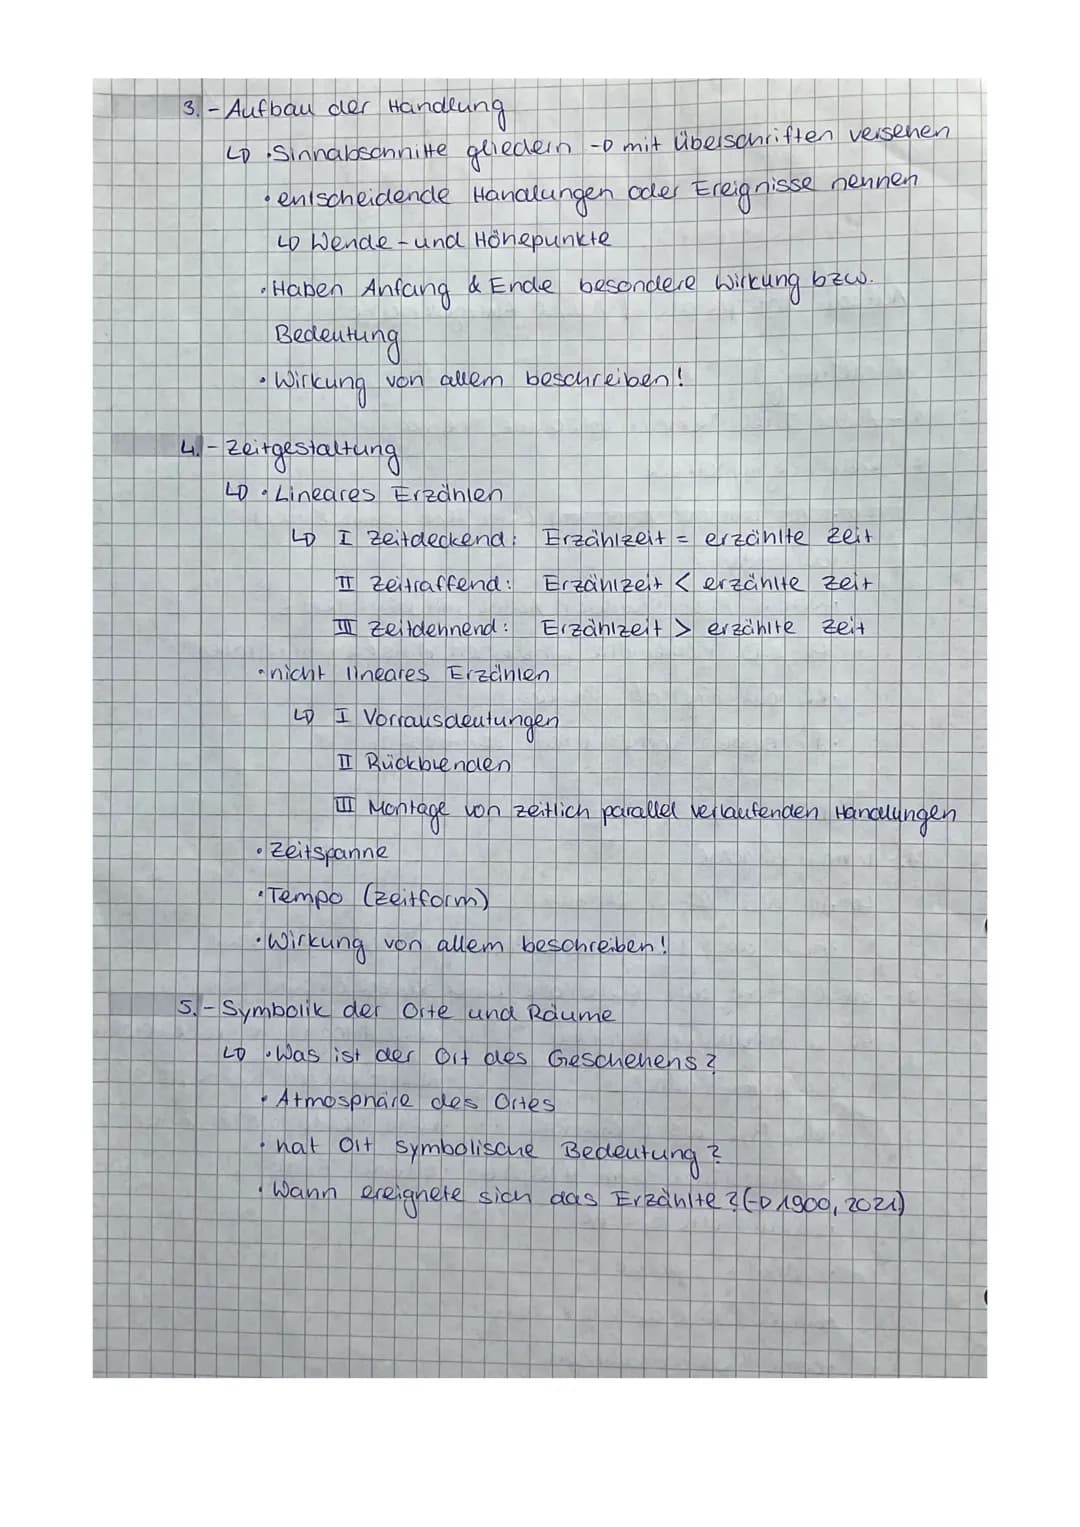 3. - Aufbau der Handlung
↳ • Sinnabschnitte gliedern → mit Überschriften versehen
• entscheidende Handlungen oder Ereignisse nennen
↳ Wende- und Höhepunkte
• Haben Anfang & Ende besondere Wirkung bzw.
Bedeutung
• Wirkung von allem beschreiben!
4. - Zeitgestaltung
↳ • Lineares Erzählen
↳ I Zeitdeckend: Erzählzeit = erzählte Zeit
II Zeitraffend: Erzählzeit < erzählte Zeit
III Zeitdehnend: Erzählzeit > erzählte Zeit
• nicht lineares Erzählen
↳ I Vorrausdeutungen
II Rückblenden
III Montage von zeitlich parallel verlaufenden Handlungen
• Zeitspanne
• Tempo (Zeitform)
• Wirkung von allem beschreiben!
5. - Symbolik der Orte und Räume
↳ • Was ist der Ort des Geschehens?
• Atmosphäre des Ortes
• hat Ort symbolische Bedeutung?
• Wann ereignete sich das Erzählte? (→ 1900, 2021)